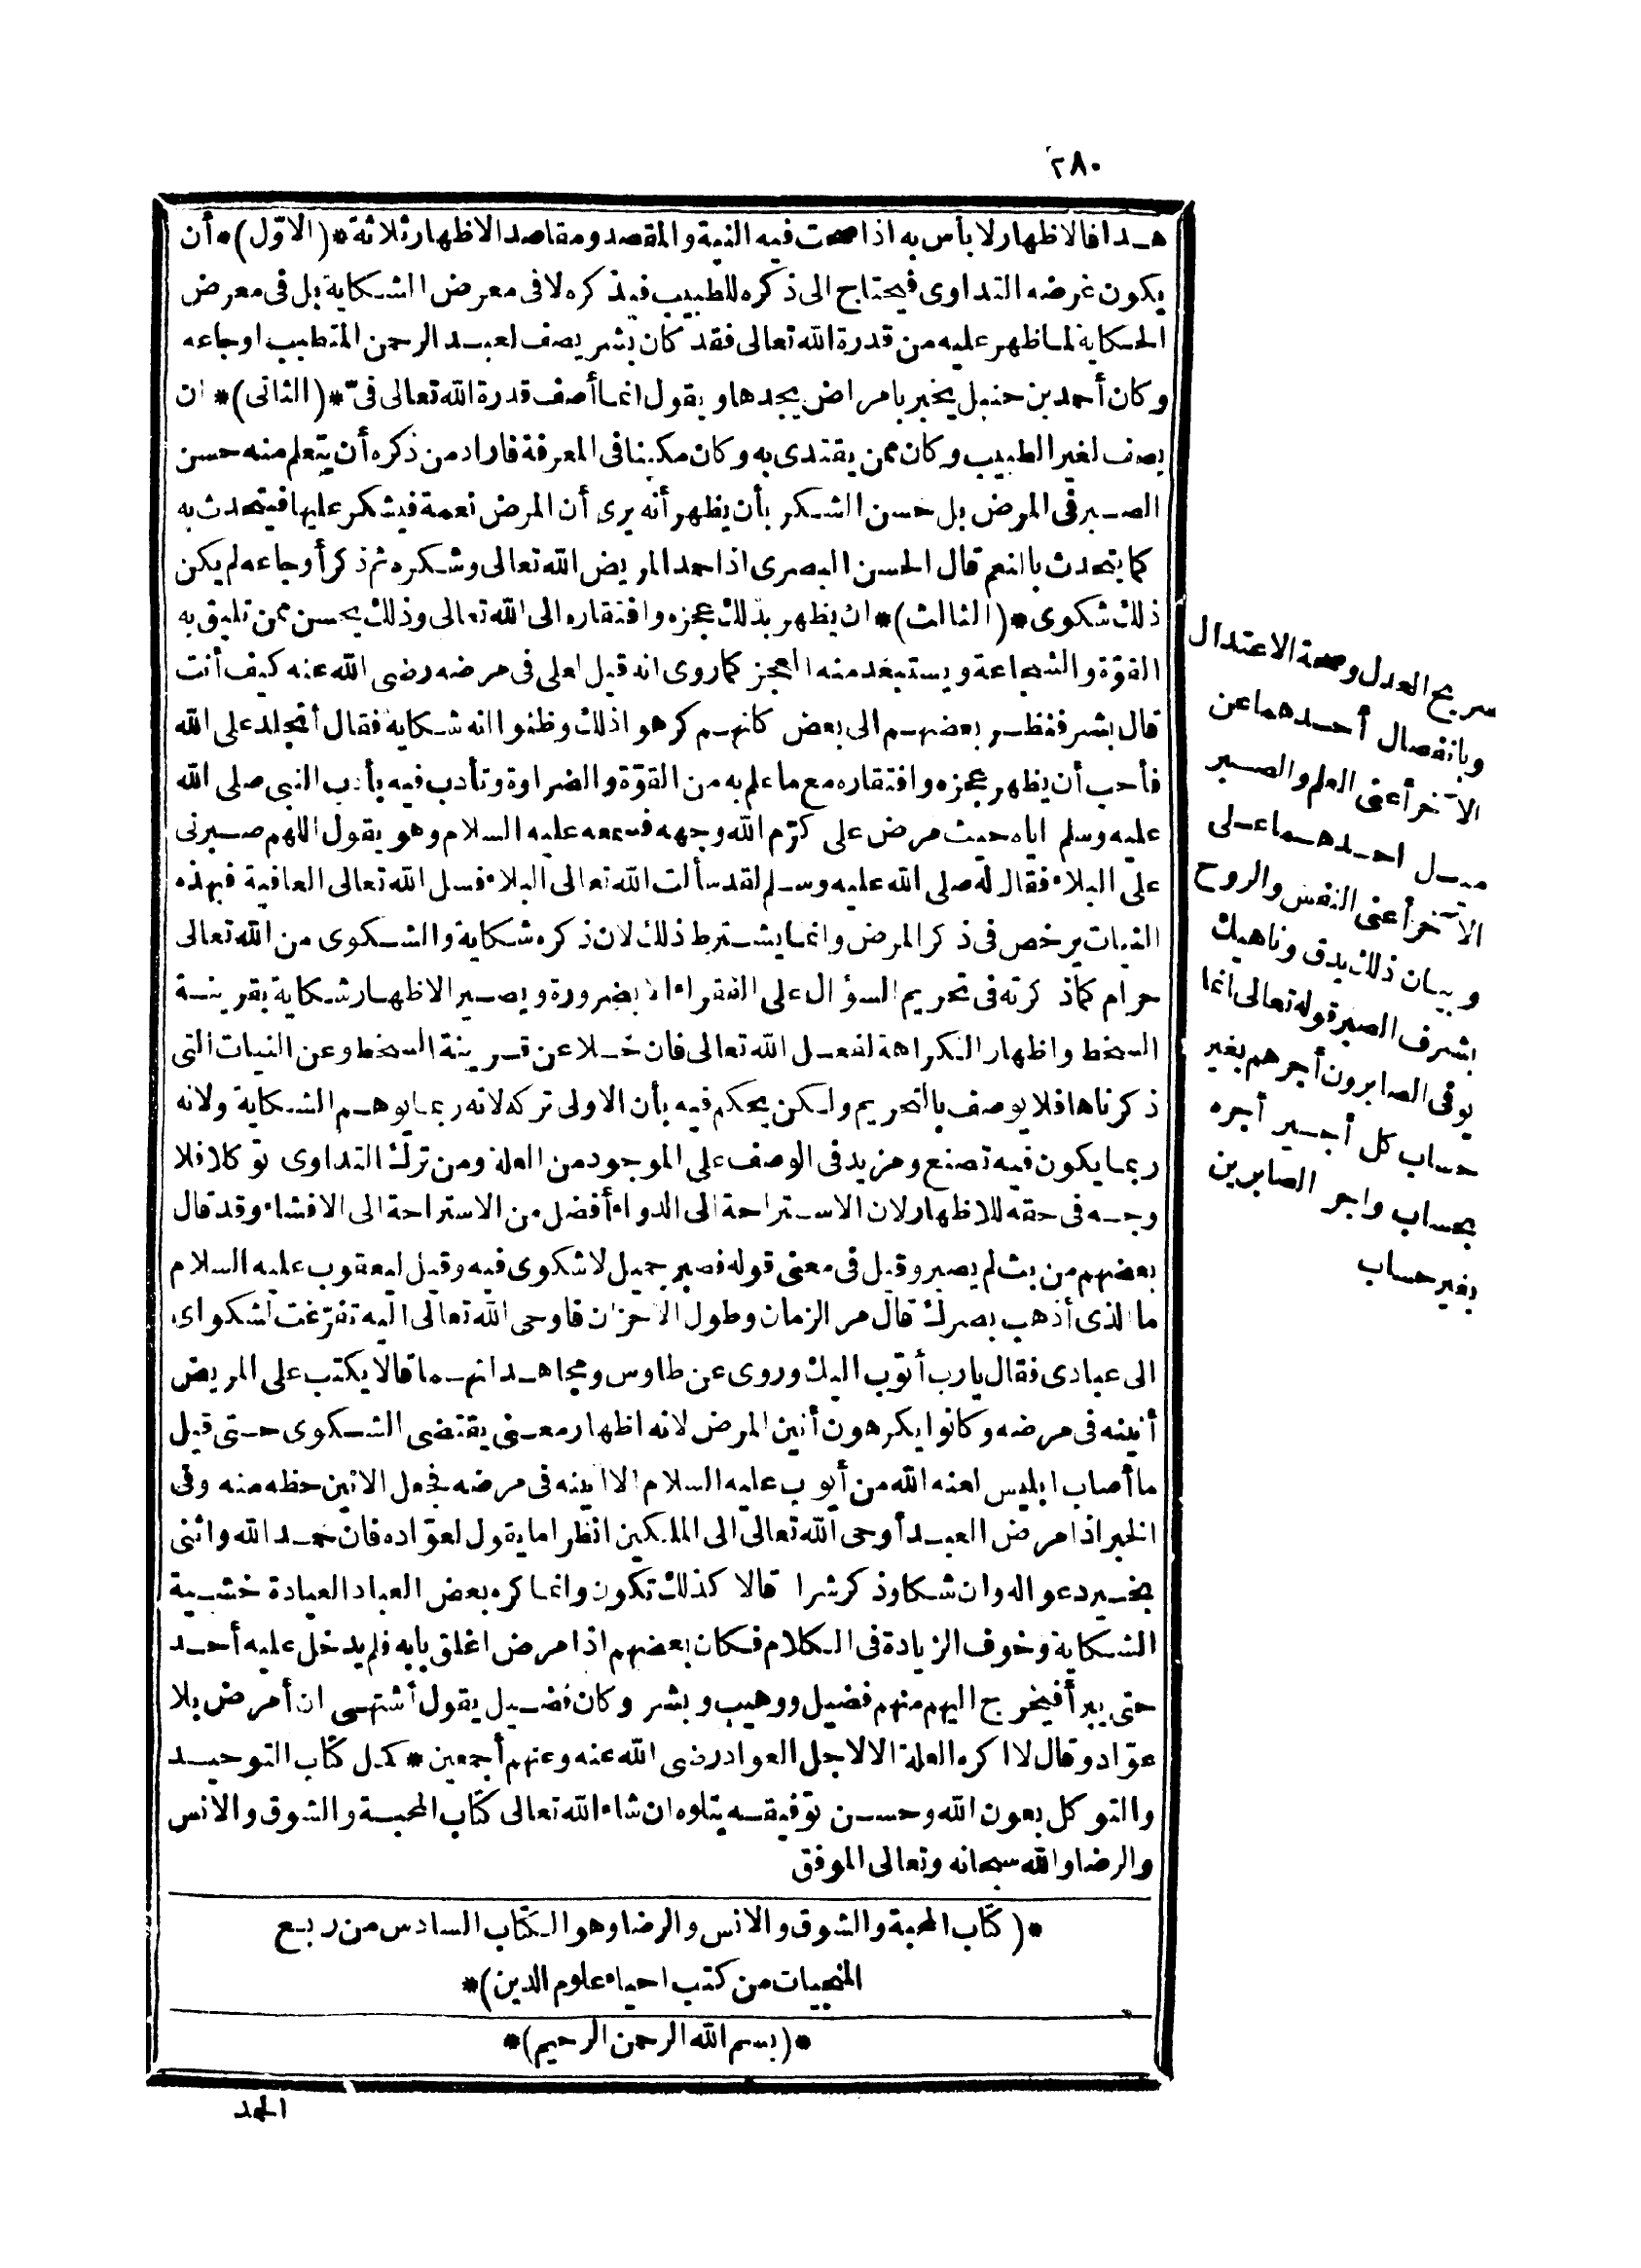 ٢٨٠
هـذا فالاظهار لا بأس به اذا صحت فيه النية والمقصد ومقاصد الاظهار ثلاثة *(الاوّل)* أن
يكون غرضه التداوى فيحتاج الى ذكره للطبيب فيذكره لا فى معرض الشكاية بل فى معرض
الحكاية لما ظهر عليه من قدرة الله تعالى فقد كان بشر يصف لعبد الرحمن المتطبب اوجاعه
وكان أحمد بن حنبل يخبر بامراض يجدها ويقول انما أصف قدرة الله تعالى فىّ *(الثانى)* ان
يصف لغير الطبيب وكان ممن يقتدى به وكان مكينا فى المعرفة فاراد من ذكره أن يتعلم منه حسن
الصبر فى المرض بل حسن الشكر بأن يظهر أنه يرى أن المرض نعمة فيشكر عليها فيتحدث به
كما يتحدث بالنعم قال الحسن البصرى اذا حمد المريض الله تعالى وشكره ثم ذكر أوجاعه لم يكن
ذلك شكوى *(الثالث)* ان يظهر بذلك عجزه وافتقاره الى الله تعالى وذلك يحسن ممن تليق به
القوّة والشجاعة ويستبعد منه العجز كما روى انه قيل لعلى فى مرضه رضى الله عنه كيف أنت
قال بشر فنظر بعضهم الى بعض كانهم كرهوا ذلك وظنوا انه شكاية فقال أتجلد على الله
فأحب أن يظهر عجزه وافتقاره مع ما علم به من القوّة والضراوة وتأدب فيه بأدب النبى صلى الله
عليه وسلم اياه حيث مرض على كرّم الله وجهه فسمعه عليه السلام وهو يقول اللهم صبرنى
على البلاء فقال له صلى الله عليه وسلم لقد سألت الله تعالى البلاء فسل الله تعالى العافية فبهذه
النيات يرخص فى ذكر المرض وانما يشترط ذلك لان ذكره شكاية والشكوى من الله تعالى
حرام كما ذكرته فى تحريم السؤال على الفقراء الا بضرورة ويصير الاظهار شكاية بقرينة
السخط واظهار الكراهة لفعل الله تعالى فان خلا عن قرينة السخط وعن النيات التى
ذكرناها فلا يوصف بالتحريم ولكن يحكم فيه بأن الاولى تركه لانه ربما يوهم الشكاية ولانه
ربما يكون فيه تصنع ومزيد فى الوصف على الموجود من العلة ومن ترك التداوى توكلا فلا
وجه فى حقه للاظهار لان الاستراحة الى الدواء أفضل من الاستراحة الى الافشاء وقد قال
بعضهم من بث لم يصبر وقيل فى معنى قوله فصبر جميل لا شكوى فيه وقيل ليعقوب عليه السلام
ما الذى أذهب بصرك قال مر الزمان وطول الاحزان فاوحى الله تعالى اليه تفرّغت لشكواى
الى عبادى فقال يا رب أتوب اليك وروى عن طاوس ومجاهد انهما قالا يكتب على المريض
أنينه فى مرضه وكانوا يكرهون أنين المرض لانه اظهار معنى يقتضى الشكوى حتى قيل
ما أصاب ابليس لعنه الله من أيوب عليه السلام الا انينه فى مرضه فجعل الانين حظه منه وفى
الخبر اذا مرض العبد أوحى الله تعالى الى الملكين انظرا ما يقول لعوّاده فان حمد الله واثنى
بخير دعوا له وان شكا وذكر شرا قالا كذلك تكون وانما كره بعض العباد العيادة خشية
الشكاية وخوف الزيادة فى الكلام فكان بعضهم اذا مرض اغلق بابه فلم يدخل عليه أحد
حتى يبرأ فيخرج اليهم منهم فضيل ووهيب وبشر وكان فضيل يقول أشتهى ان أمرض بلا
عوّاد وقال لا اكره العلة الا لاجل العواد رضى الله عنه وعنهم أجمعين * كمل كتاب التوحيد
والتوكل بعون الله وحسن توفيقه يتلوه ان شاء الله تعالى كتاب المحبة والشوق والانس
والرضا والله سبحانه وتعالى الموفق
*(كتاب المحبة والشوق والانس والرضا وهو الكتاب السادس من ربع
المنجيات من كتب احياء علوم الدين)*
*(بسم الله الرحمن الرحيم)*
الحمد
سريح العدل وصحة الاعتدال
وبانفصال أحدهما عن
الآخر أعنى العلم والصبر
ميل احدهما على
الآخر أعنى النفس والروح
وبيان ذلك يدق وناهيك
بشرف الصبر قوله تعالى انما
يوفى الصابرون أجرهم بغير
حساب كل أجير أجره
بحساب واجر الصابرين
بغير حساب